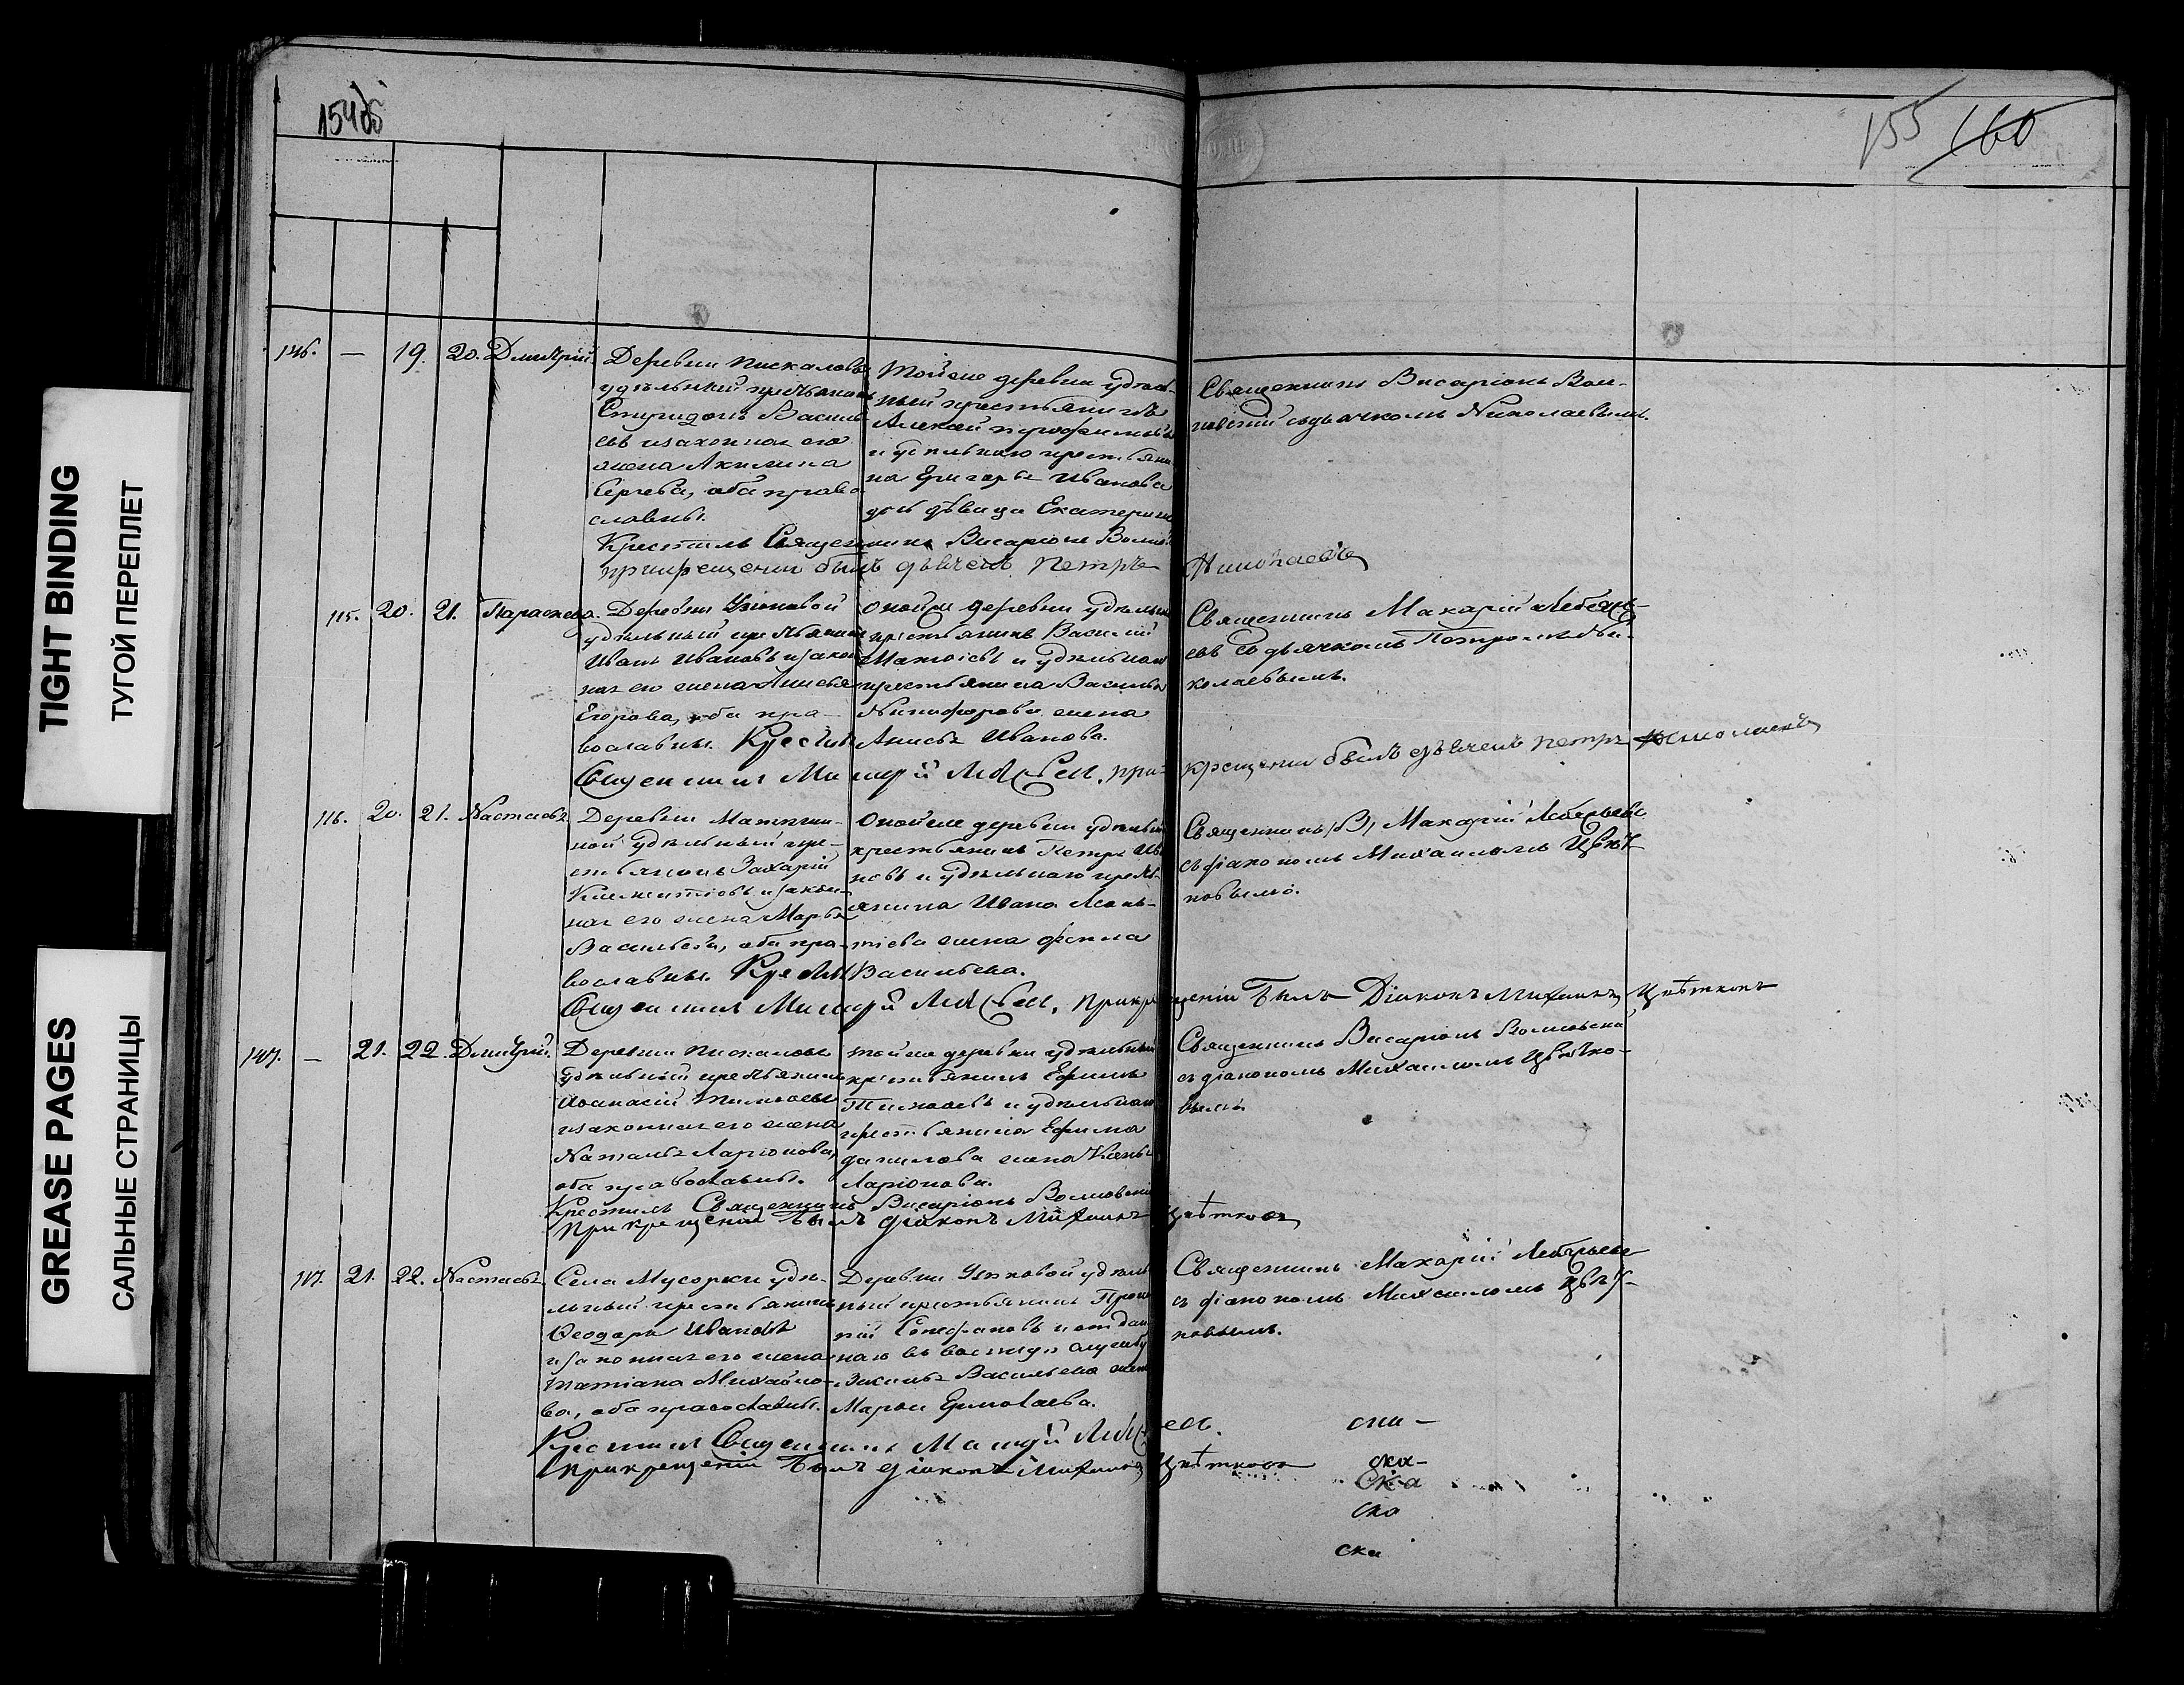 154об
155 160
TIGHT BINDING
ТУГОЙ ПЕРЕПЛЕТ
GREASE PAGES
САЛЬНЫЕ СТРАНИЦЫ
146. — 19. 20. Дмитрій.
Деревни Пискаловы
удѣльный крестьянинъ
Спиридонъ Василь
евъ и законная его
жена Акилина
Сергѣева, оба право
славны.
Тойже деревни удѣль
ный крестьянинъ
Алексѣй
и удѣльнаго крестьяни
на Григорья Иванова
дочь дѣвица Екатерина
Священникъ Висаріонъ Вол-
ковскій съ дьячкомъ Николаевымъ.
Крестилъ Священникъ Висаріонъ
при крещеніи былъ дьячекъ Петръ Николаевъ
115. 20. 21. Параскева.
Деревни Узюковой
удѣльный крестьянинъ
Иванъ Ивановъ и закон
ная его жена Анисья
Егорова, оба пра-
вославны.
Оной же деревни удѣльный
крестьянинъ Василій
Матвѣевъ и удѣльнаго
крестьянина Василья
Никифорова жена
Анисья Иванова.
Священникъ Макарій
съ дьячкомъ Петромъ Ни-
колаевымъ.
Крестилъ
Священникъ Макарій при
крещеніи былъ дьячекъ Петръ Николаевъ
116. 20. 21. Настасья
Деревни
ной удѣльный кре-
стьянинъ Захарій
Климентіевъ и закон-
ная его жена Марья
Васильева, оба пра-
вославны.
Оной же деревни удѣльный
крестьянинъ Петръ Ива
новъ и удѣльнаго крест-
янина Ивана Леонъ-
тіева жена Фекла
Васильева.
Священникъ Макарій
съ діакономъ Михаиломъ Цвѣт
ковымъ.
Крестилъ
Священникъ Макарій при крещеніи былъ Діаконъ Михаилъ Цвѣтковъ
147. — 21. 22. Дмитрій.
Деревни Пискаловы
удѣльный крестьянинъ
Афанасій Тимофеевъ
и законная его жена
Наталья Ларіонова,
оба православны.
Тойже деревни удѣльный
крестьянинъ Ефимъ
Тимофеевъ и удѣльнаго
крестьянина Ефима
Данилова жена
Ларіонова.
Священникъ Висаріонъ
съ діакономъ Михаиломъ Цвѣтко-
вымъ.
Крестилъ Священникъ Висаріонъ
При крещеніи былъ діаконъ Михаилъ Цвѣтковъ
117. 21. 22. Настасья
Села Мусорки удѣ-
льный крестьянинъ
Ѳеодоръ Ивановъ
и законная его жена
Татіана Михайло-
ва, оба православны.
Деревни Узюковой удѣль
ный крестьянинъ
Стефановъ и отдан
наго въ военную службу
Васильева жена
Марья Ермолаева.
Священникъ Макарій
съ діакономъ Михаиломъ Цвѣт-
ковымъ.
Крестилъ Священникъ Макарій
При крещеніи былъ діаконъ Михаилъ Цвѣтковъ
ска-
ска
ска
ска